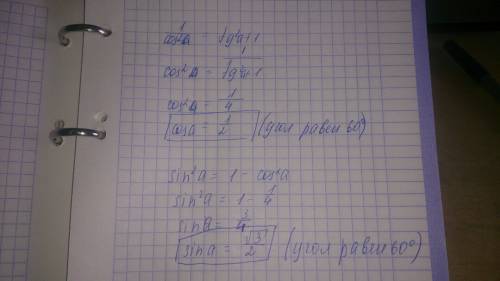 1/cos²a = tg²a+1
cos²a = 1/tg²a+1
cos²a = 1/4
cosa = 1/2 (угол равен 60°)
sin²a = 1 - cos²a
sin²a = 1 - 1/4
sina = 3/4
sina = √3/2 (угол равен 60°)